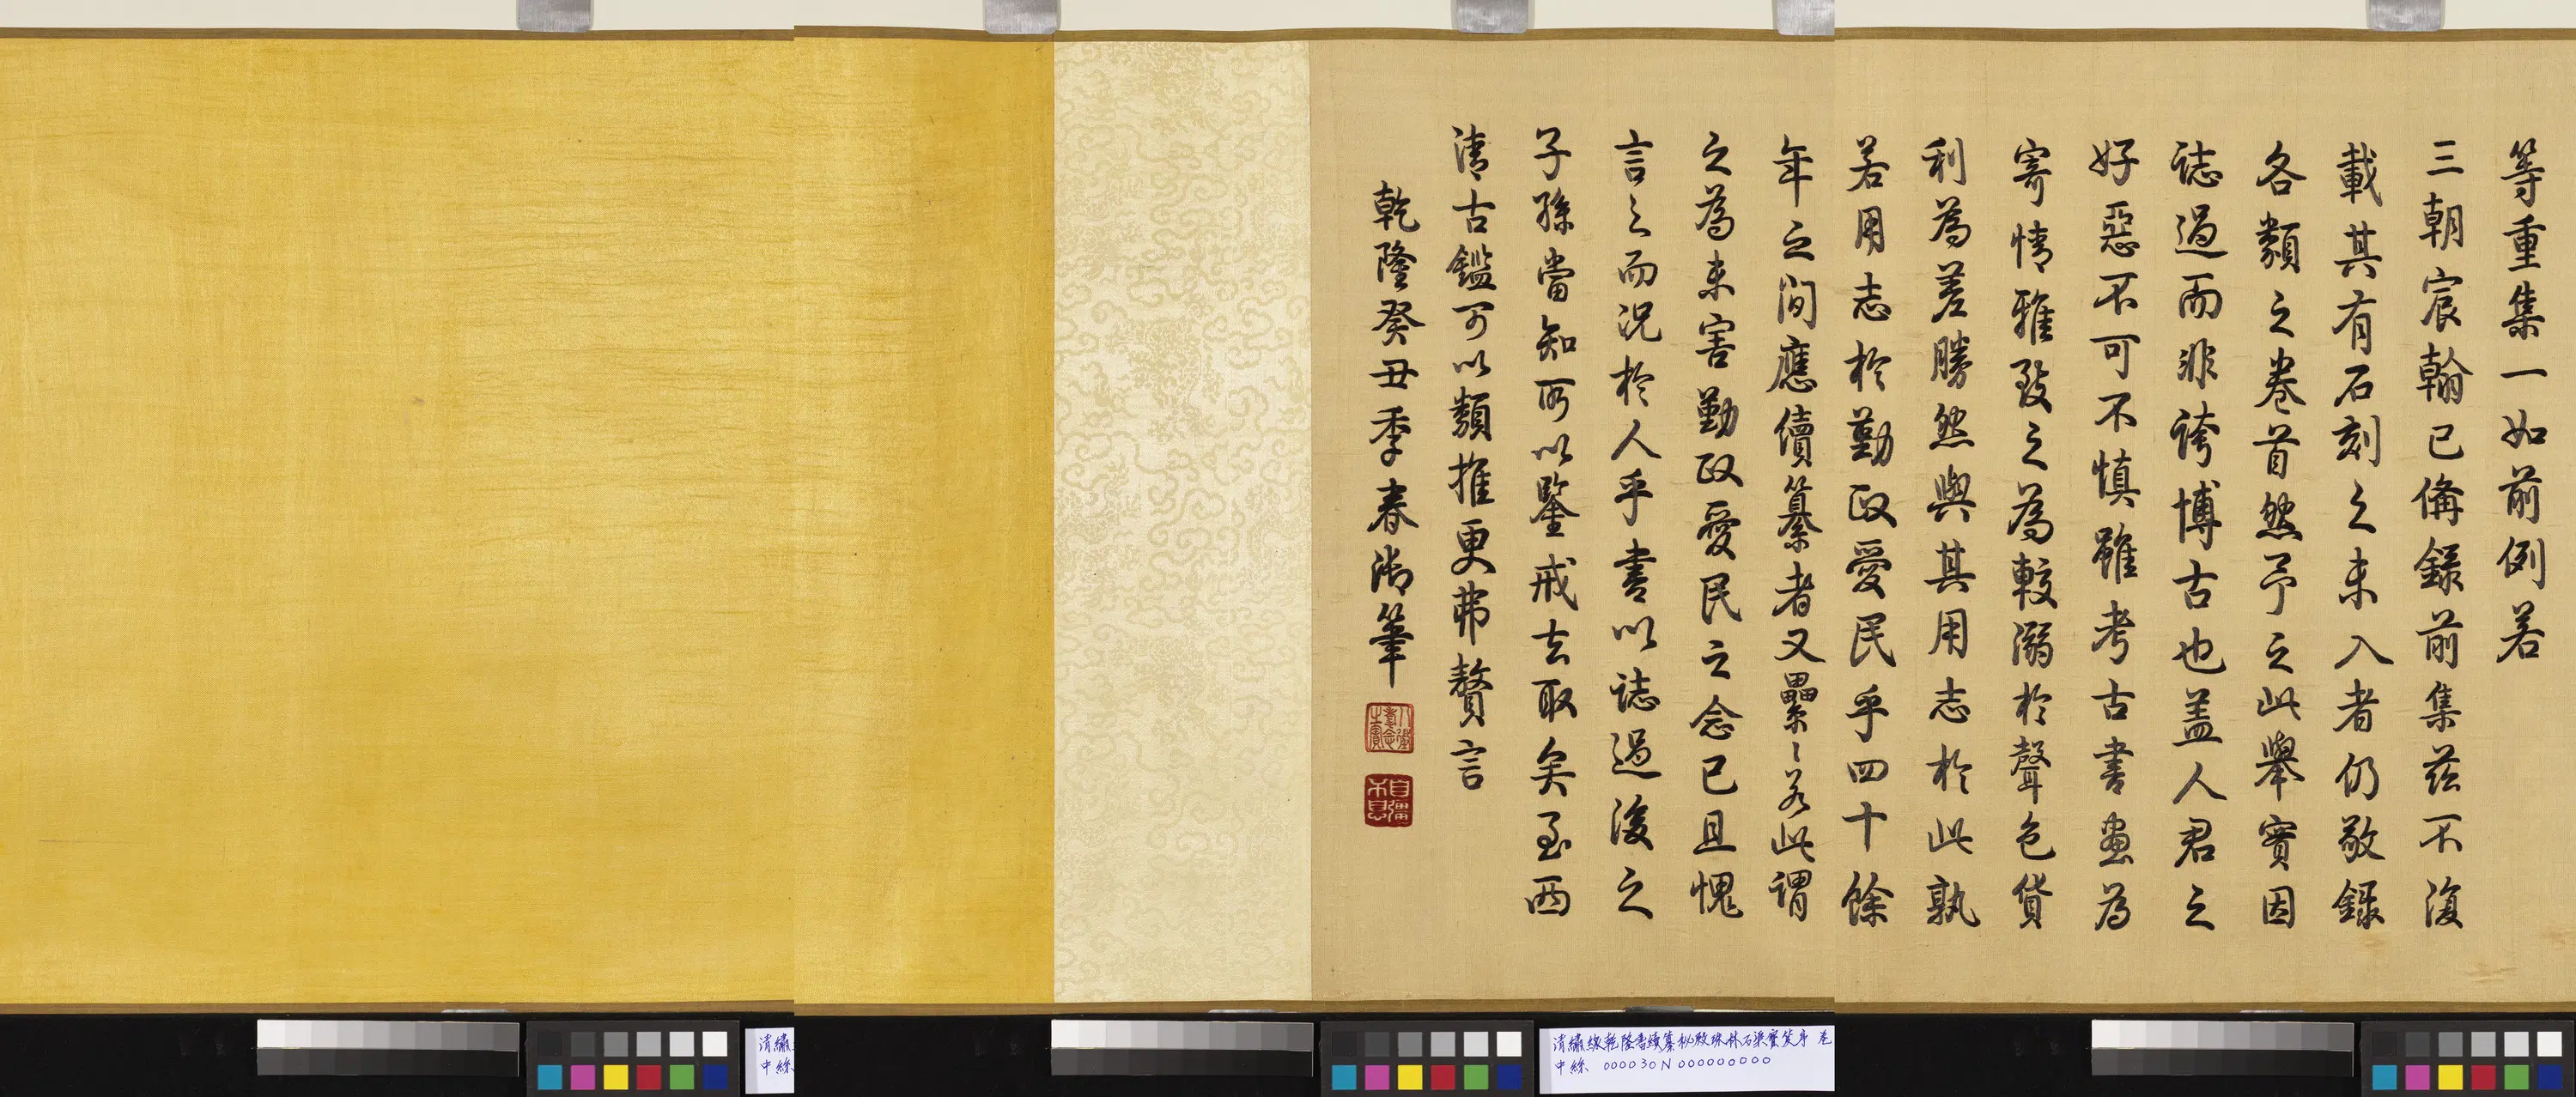 等重集一如前例若
三朝宸翰已備錄前集茲不復
載其有石刻之未入者仍敬錄
各類之卷首然予之此舉實因
誌過而非誇博古也蓋人君之
好惡不可不慎雖考古書畫為
寄情雅致之為較溺於聲色貨
利為差勝然與其用志於此孰
若用志於勤政愛民乎四十餘
年之間應續纂者又纍〻若此謂
之為未害勤政愛民之念已且愧
言之而況於人乎書以誌過後之
子孫當知所以鑒戒去取矣至西
清古鑑可以類推更弗贅言
乾隆癸丑季春御筆
八徵耄念之寶
自彊不息
清繡
中絲
清繡線乾隆書續纂秘殿珠林石渠寶笈序 卷
中絲 000030N000000000